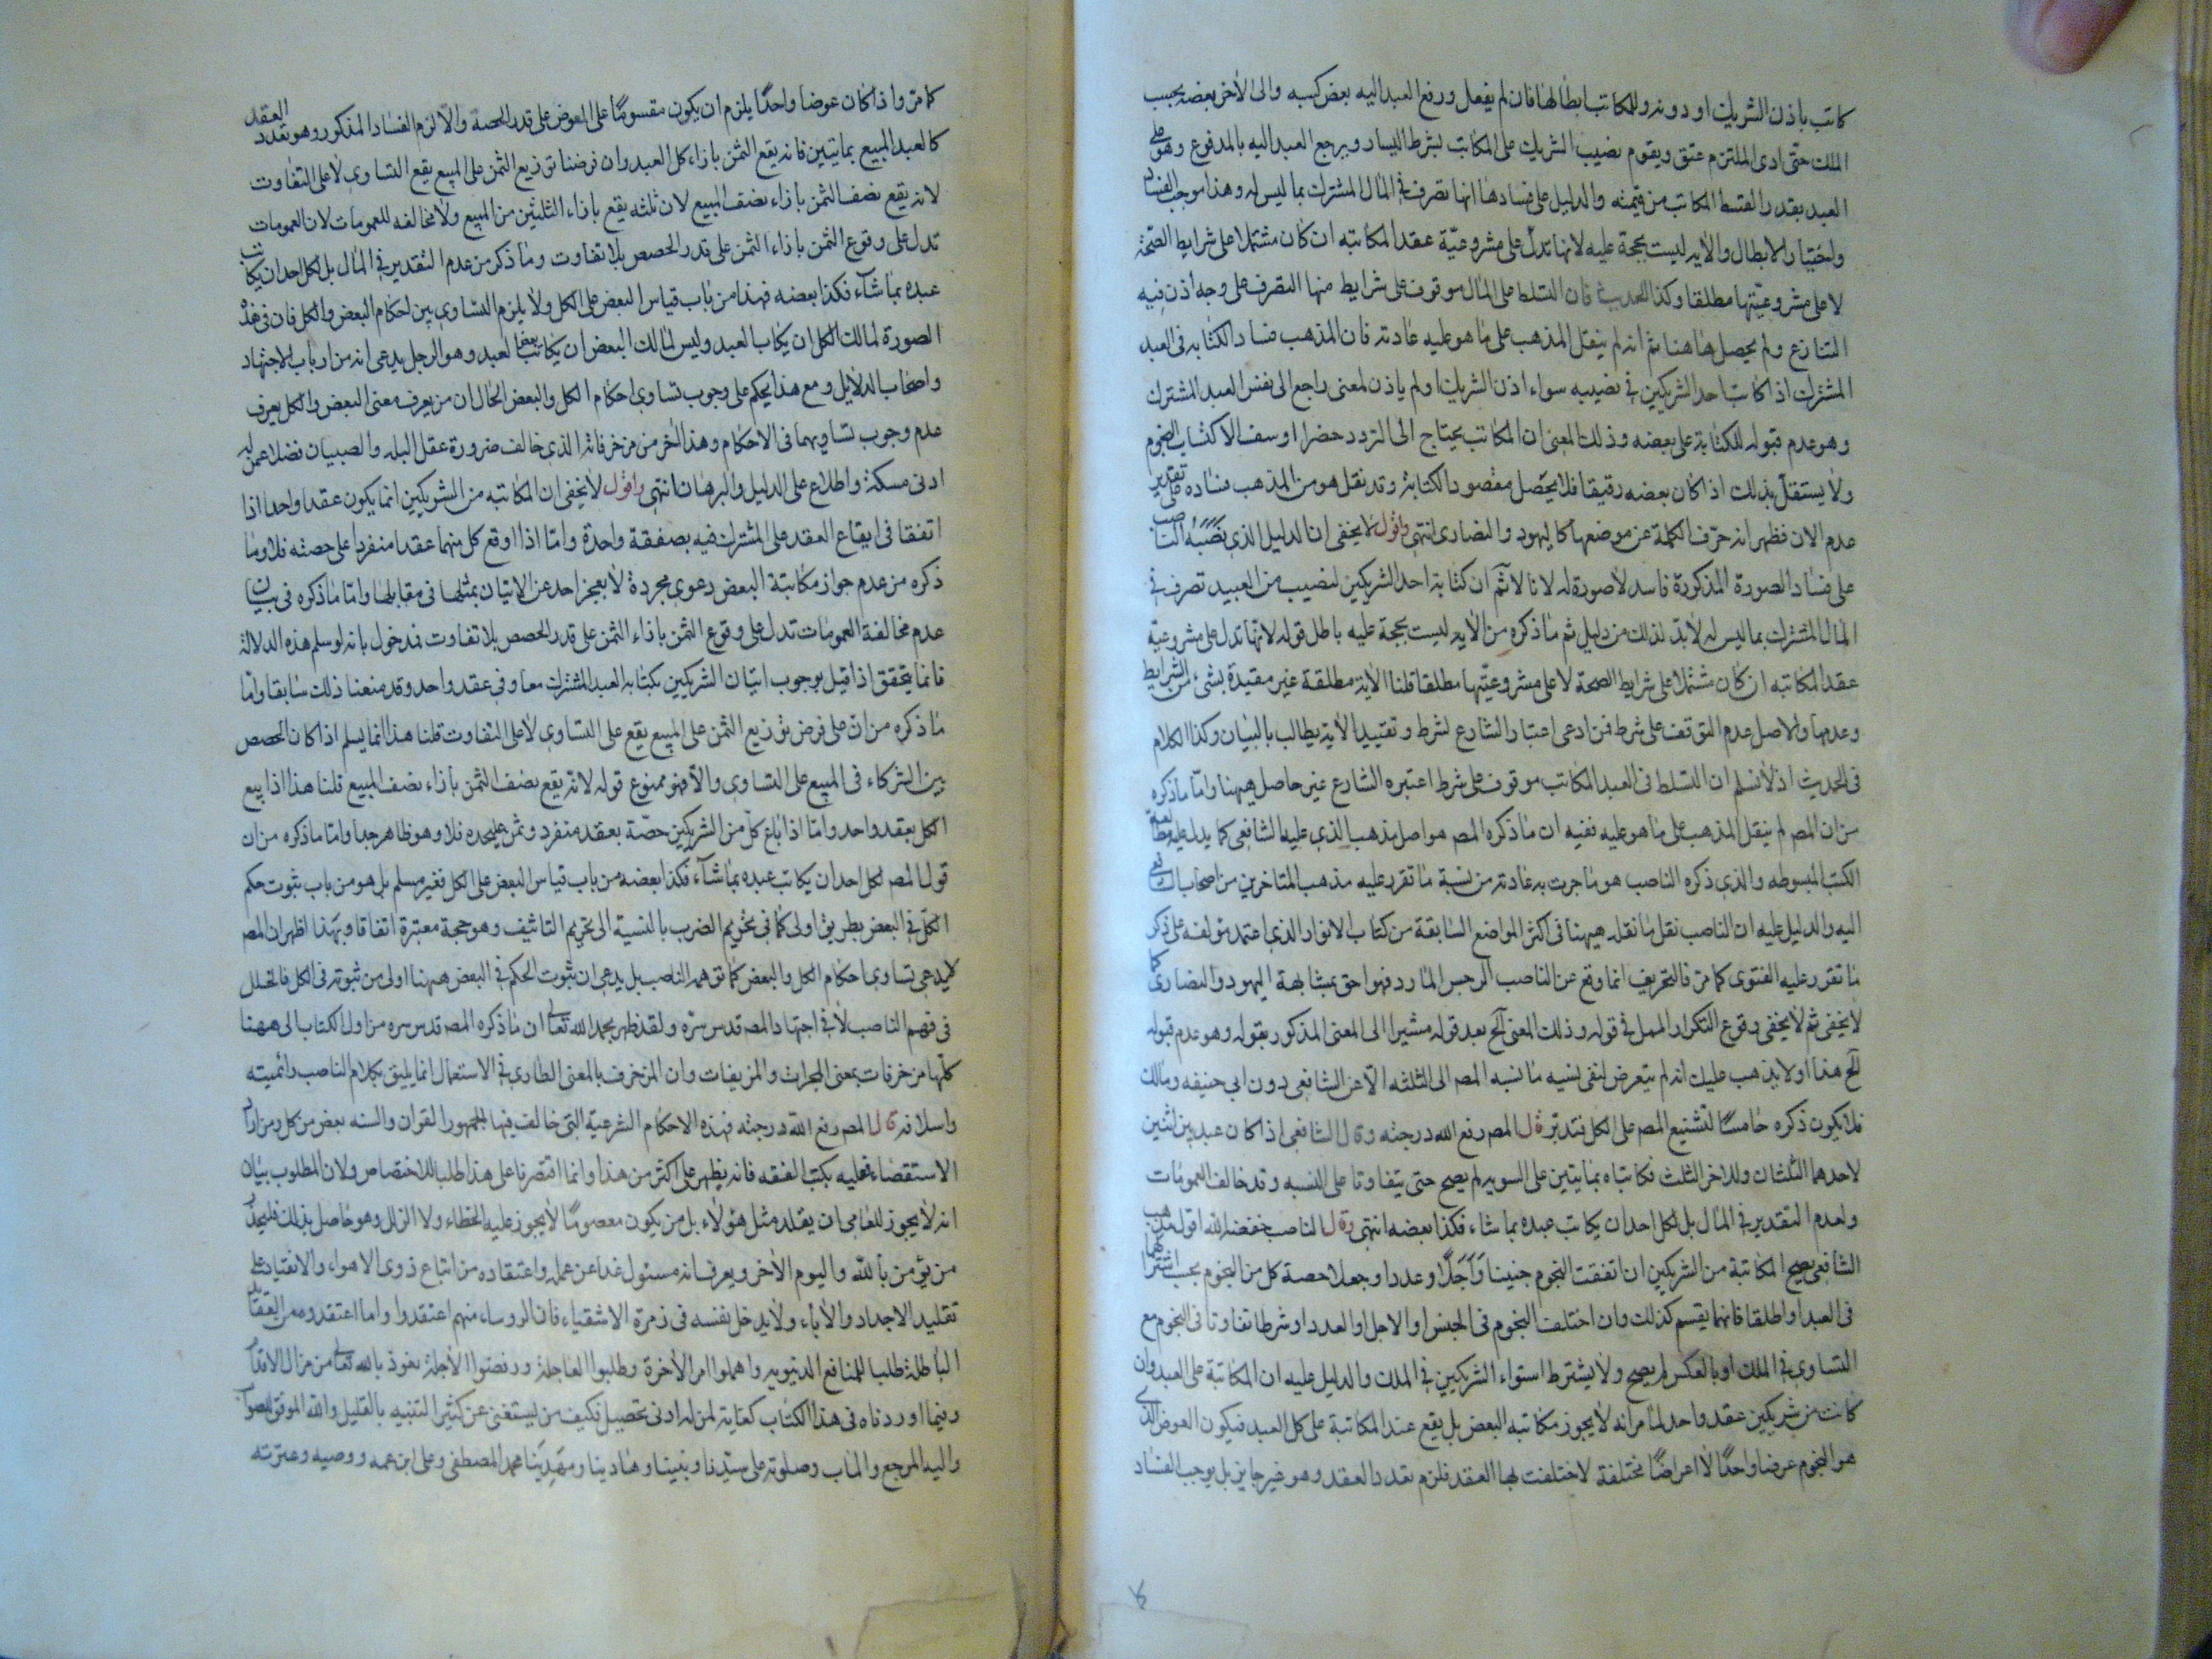 كاتب باذن الشريك او دونه وللمكاتب ابطالها فان لم يفعل ورفع العبد اليه بعض كسبه والى الاخر بعضه بحسب
الملك حتى ادى الملتزم عتق ويقوم نصيب الشريك على المكاتب بشرط اليسار ويرجع العبد اليه بالمدفوع وهو على
العبد بقدر القسط المكاتب من قيمته والدليل على فسادها انها تصرف في المال المشترك بما ليس له وهذا موجب الفساد
والابطال والاية ليست بحجة عليه لانها تدل على مشروعية عقد المكاتبه ان كان مشتملا على شرايط الصحة
لا على مشروعيتها مطلقا وكذا الحديث فان التسلط على المال موقوف على شرايط منها التصرف على وجه اذن فيه
التنازع ولم يحصل هاهنا ثم انه لم ينقل المذهب على ما هو عليه عادته فان المذهب فساد الكتابه فى العبد
المشترك اذا كاتب احد الشريكين في نصيبه سواء اذن الشريك او لم ياذن لمعنى راجع الى نفس العبد المشترك
وهو عدم قبوله للكتابة على بعضه وذلك المعنى ان المكاتب يحتاج الى التردد حضرا وسفرا لاكتساب النجوم
ولا يستقل بذلك اذا كان بعضه رقيقا فلا يحصل مقصود الكتابة وقد نقل هو من المذهب فساده على تقدير
عدم الاذن فظهر انه حرف الكلمة عن موضعها كاليهود والنصارى انتهى واقول لا يخفى ان الدليل الذى نصبه الناصب
على فساد الصورة المذكورة فاسد لا صورة له لانا لا نم ان كتابة احد الشريكين لنصيب من العبد تصرف في
المال المشترك بما ليس له لا بد لذلك من دليل ثم ما ذكره من الاية ليست بحجة عليه باطل قوله لانها تدل على مشروعية
عقد المكاتبه ان كان مشتملا على شرايط الصحة لا على مشروعيتها مطلقا قلنا الاية مطلقة غير مقيدة بشىء من الشرايط
وعدمها والاصل عدم التوقف على شرط فمن ادعى اعتبار الشارع لشرط وتقييد الاية يطالب بالبيان وكذا الكلام
فى الحديث اذ لا نسلم ان التسلط فى العبد المكاتب موقوف على شرط اعتبره الشارع غير حاصل ههنا واما ما ذكره
من ان المص لم ينقل المذهب على ما هو عليه ففيه ان ما ذكره المص هو اصل مذهب الذي عليه الشافعى كما يدل عليه مطالعة
الكتب المبسوطه والذى ذكره الناصب هو ما جرت به عادته من نسبة ما تقرر عليه مذهب المتاخرين من اصحاب الشافعي
اليه والدليل عليه ان الناصب نقل ما نقله ههنا فى اكثر المواضع السابقة من كتاب الانوار الذى اعتمد مؤلفه على ذكر
ما تقرر عليه الفتوى كما مر فالتحريف انما وقع عن الناصب الرجس المارد فهو احق بمشابهة اليهود والنصارى كما
لا يخفى ثم لا يخفى وقوع التكرار المهمل في قوله وذلك المعنى آلخ بعد قوله مشيرا الى المعنى المذكور بقوله وهو عدم قبوله
آلخ هذا اولا يذهب عليك انه لم يتعرض لنفى نسبه ما نسبه المص الى الثلثه الا عن الشافعى دون ابى حنيفه ومالك
فلا يكون ذكره حاسما لتشنيع المص على الكل فتدبر قال المص رفع الله درجته وقال الشافعى اذا كان عبد بين اثنين
لاحدهما الثلثان وللاخر الثلث فكاتباه بمايتين على السويه لم يصح حتى يتفاوتا على النسبه وقد خالف العمومات
ولعدم التقدير في المال بل لكل احد ان يكاتب عبده بما شاء فكذا بعضه انتهى وقال الناصب خفضه الله اقول مذهب
الشافعى يصح المكاتبة من الشريكين ان اتفقت النجوم جنسا واجلا وعددا وجعلا حصة كل من النجوم بحسب اشتراكهما
فى العبد او اطلقا فانهما يقسم كذلك وان اختلف النجوم فى الجنس او الاجل او العدد او شرطا تفاوتا فى النجوم مع
التساوى في الملك او بالعكس لم يصح ولا يشترط استواء الشريكين في الملك والدليل عليه ان المكاتبة على العبد وان
كانت من شريكين عقد واحد لما مر انه لا يجوز مكاتبه البعض بل يقع عند المكاتبة على كل العبد فيكون العوض الذي
هو النجوم عوضا واحدا لا اعراضا مختلفة لاختلفت لها العقد فلزم تعدد العقد وهو غير جايز بل يوجب الفساد
كما مر واذا كان عوضا واحدا يلزم ان يكون مقسوما على العوض على قدر الحصة والا لزم الفساد المذكور وهو تعدد العقد
كالعبد المبيع بمايتين فانه يقع الثمن بازاء كل العبد وان فرضنا توزيع الثمن على المبيع يقع التساوى لا على التفاوت
لانه يقع نصف الثمن بازاء نصف المبيع لان ثلثه يقع بازاء الثلثين من المبيع ولا مخالفه للعمومات لان العمومات
تدل على وقوع الثمن بازاء الثمن على قدر الحصص بلا تفاوت وما ذكر من عدم التقدير في المال بل لكل احد ان يكاتب
عبده بما شآء فكذا بعضه فهذا من باب قياس البعض على الكل ولا يلزم التساوى بين احكام البعض والكل فان فى هذه
الصورة لمالك الكل ان يكاتب العبد وليس لمالك البعض ان يكاتب بعض العبد وهو الرجل يدعى انه من ارباب الاجتهاد
واصحاب الدلايل ومع هذا يحكم على وجوب تساوى احكام الكل والبعض الحال ان من يعرف معنى البعض والكل يعرف
عدم وجوب تساويهما فى الاحكام وهذا اخر من مزخرفاته الذى خالف ضرورة عقل البله والصبيان فضلا عمن له
ادنى مسكة واطلاع على الدليل والبرهان انتهى واقول لا يخفى ان المكاتبه من الشريكين انما يكون عقدا واحدا اذا
اتفقا فى ايقاع العقد على المشترك فيه بصفقة واحدة واما اذا اوقع كل منهما عقدا منفردا على حصته فلا وما
ذكره من عدم جواز مكاتبة البعض دعوى مجردة لا يعجز احد عن الاتيان بمثلها فى مقابلها واما ما ذكره فى بيان
عدم مخالفة العمومات تدل على وقوع الثمن بازاء الثمن على قدر الحصص بلا تفاوت فمدخول بانه لو سلم هذه الدلالة
فانما يتحقق اذا قيل بوجوب اتيان الشريكين بكتابه العبد المشترك معا وفى عقد واحد وقد منعنا ذلك سابقا واما
ما ذكره من ان على فرض توزيع الثمن على المبيع يقع على التساوى لا على التفاوت قلنا هذا انما يسلم اذا كان الحصص
بين الشركاء فى المبيع على التساوى والا فهو ممنوع قوله لانه يقع نصف الثمن بازاء نصف المبيع قلنا هذا اذا بيع
الكل بعقد واحد واما اذا باع كل من الشريكين حصة بعقد منفرد وثمن عليحده فلا وهو ظاهر جدا واما ما ذكره من ان
قول المص لكل احد ان يكاتب عبده بما شآء فكذا بعضه من باب قياس البعض على الكل فغير مسلم بل هو من باب ثبوت حكم
الكل في البعض بطريق اولى كما فى تحريم الضرب بالنسبة الى تحريم التافيف وهو حجة معتبرة اتفاقا وبهذا اظهر ان المص
لا يدعى تساوى احكام الكل والبعض كما توهمه الناصب بل يدعى ان ثبوت الحكم في البعض ههنا اولى من ثبوته فى الكل فالخلل
فى فهم الناصب لا في اجتهاد المص قدس سره ولقد ظهر بحمد الله تعالى ان ما ذكره المص قدس سره من اول الكتاب الى ههنا
كلها مزخرفات بمعنى المجرات والمزيفات وان المزخرف بالمعنى الطارى في الاستعمال انما يليق بكلام الناصب وائمته
واسلافه قال المص رفع الله درجته فهذه الاحكام الشرعية التى خالف فيها الجمهور القران والسنه بعض من كل ومن اراد
الاستقضاء فعليه بكتب الفقه فانه يظهر على اكثر من هذا وانما اقتصرنا على هذا طلبا للاختصاص ولان المطلوب بيان
انه لا يجوز للعامى ان يقلد مثل هؤلاء بل من يكون معصوما لا يجوز عليه الخطاء ولا الزلل وهو حاصل بذلك فليحذر
من يؤمن بالله واليوم الاخر ويعرف انه مسئول غدا عن عمله واعتقاده من اتباع ذوى الاهواء والانقياد على
تقليد الاجداد والاباء ولا يدخل نفسه فى زمرة الاشقياء فان الروساء منهم اعتقدوا واما اعتقدوه من العقائد
الباطلة طلبا للمنافع الدنيويه واهملوا امر الاخرة وطلبوا العاجلة ورفضوا الاجلة نعوذ بالله تعالى من مزال الاقدام
وفيما اوردناه فى هذا الكتاب كفاية لمن له ادنى تحصيل فكيف من يستغنى عن كثير التنبيه بالقليل والله الموفق للصواب
واليه المرجع والماب وصلوته على سيدنا ونبينا وهادينا ومهدينا محمد المصطفى وعلى ابن عمه ووصيه وعترته